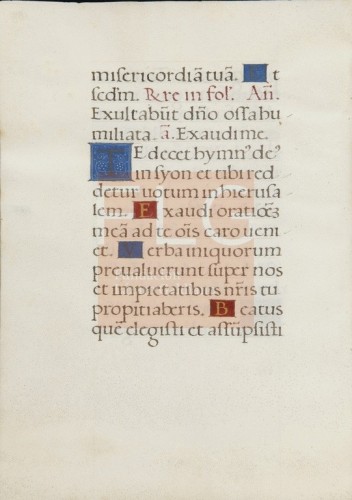 misericordiā tuā. Et
sed̄m. R&re in fol'. An̄.
Exultabūt dn̄o ossa hu
miliata. ā. Exaudi me.
TE decet hymn⁹ de⁹
in syon et tibi red
detur uotum in hierusa
lem. Exaudi orationē
meā ad te oīs caro ueni
et. Verba iniquorum
preualuerunt super nos
et impietatibus nr̄is tu
propitiaberis. Beatus
quē elegisti et assūpsisti